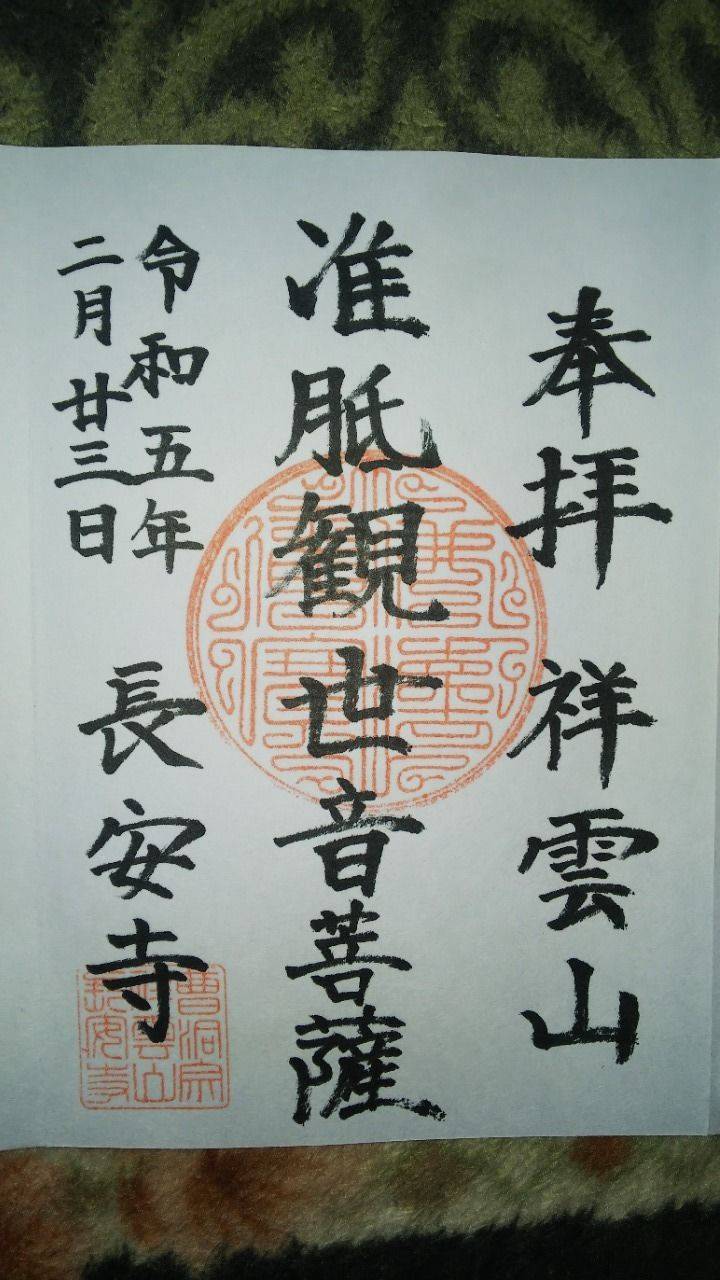 奉拝 祥雲山
准胝観世音菩薩
令和五年
二月廿三日
長安寺
曹洞宗
祥雲山
長安寺